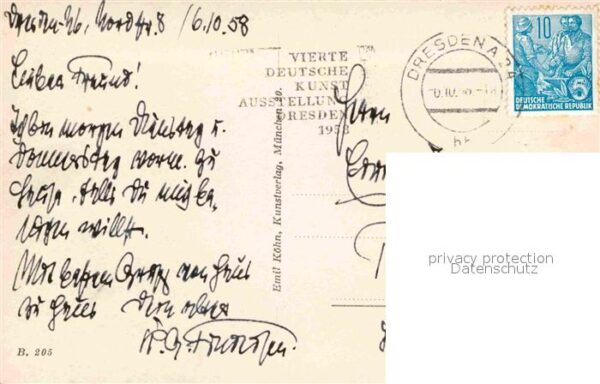 Dresden-N6, Nordstr. 8 / 6.10.58
Lieber Freund!
Ich bin morgen Dienstag u.
Donnerstag vorm. zu
Hause, falls Du mich be-
suchen willst.
Mit besten Grüßen von Haus
zu Haus Dein alter
B. 205
Emil Köhn, Kunstverlag, München 20.
VIERTE
DEUTSCHE
KUNST
AUSSTELLUNG
DRESDEN
1958
DRESDEN A 24
10
DEUTSCHE
DEMOKRATISCHE REPUBLIK
5
Herrn
privacy protection
Datenschutz